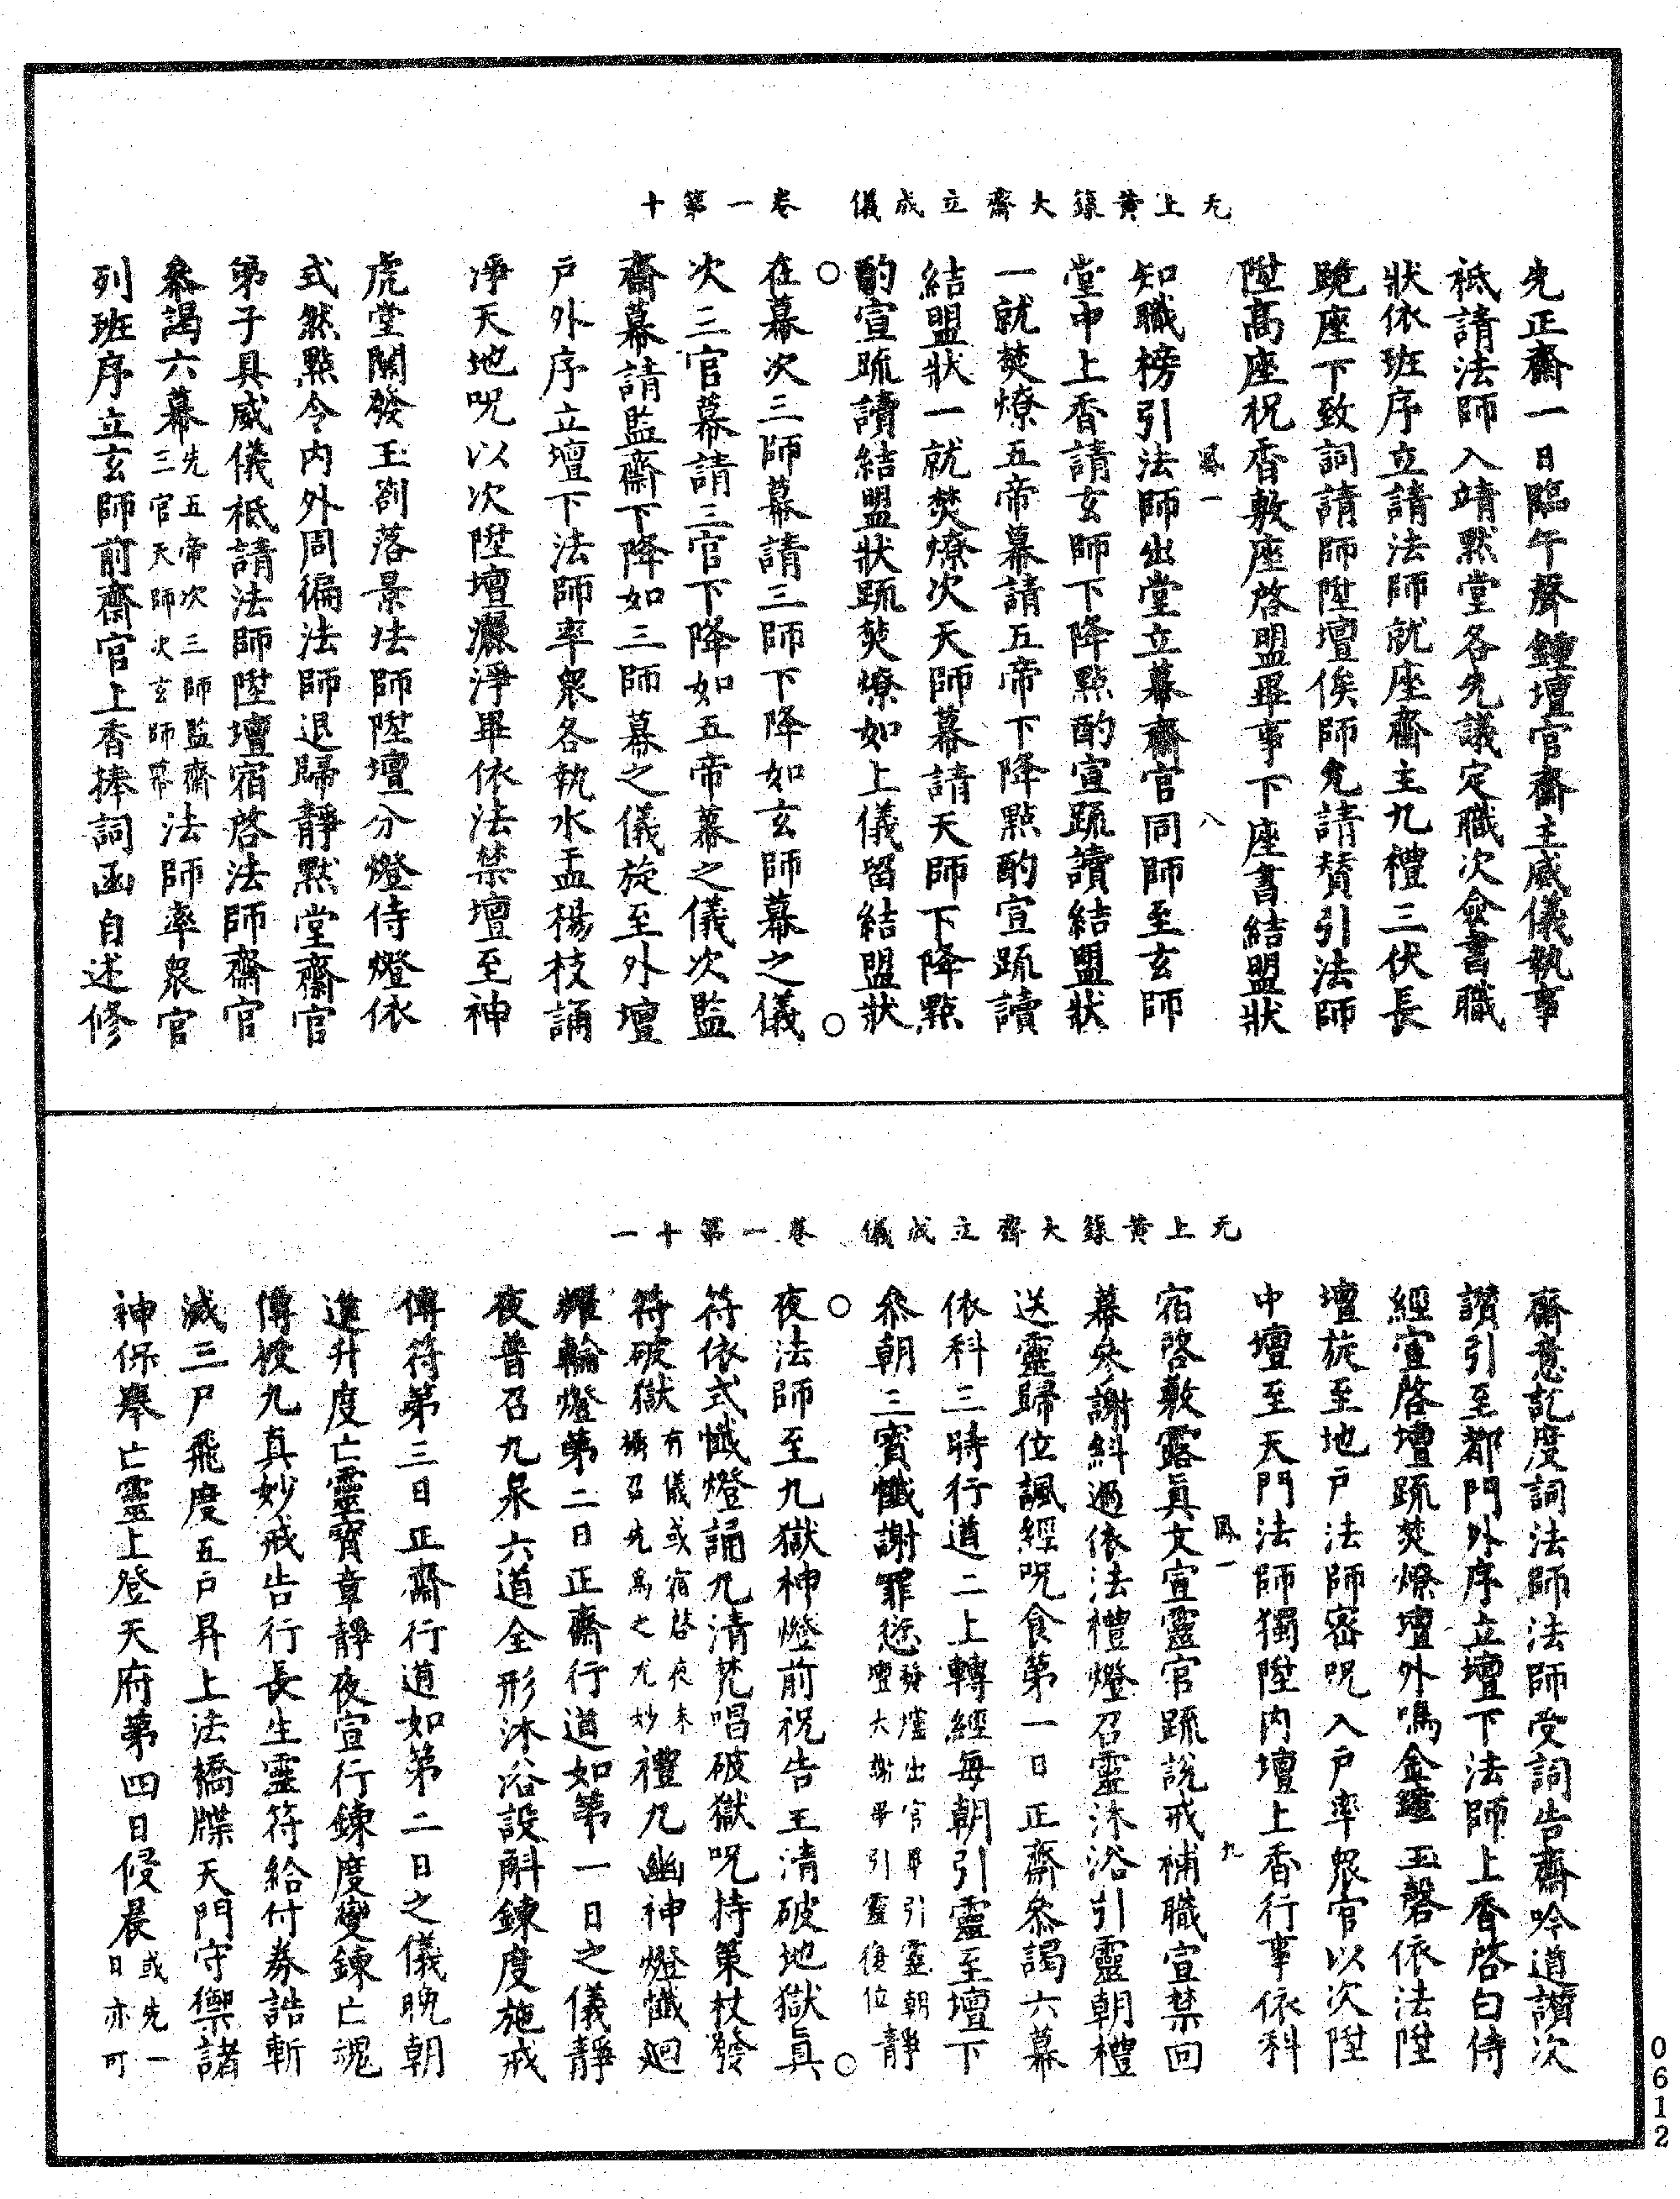 无上黃籙大齋立成儀　卷一第十
先正齋一日臨午聲鍾壇官齋主威儀執事
祗請法師入靖默堂各先議定職次僉書職
狀依班序立請法師就座齋主九禮三伏長
跪座下致詞請師陞壇俟師允請贊引法師
陞高座祝香敷座啓盟畢事下座書結盟狀
鳳一　八
知職榜引法師出堂立幕齋官同師至玄師
堂中上香請玄師下降點酌宣䟽讀結盟狀
一就焚燎五帝幕請五帝下降點酌宣䟽讀
結盟狀一就焚燎次天師幕請天師下降點
酌宣䟽讀結盟狀䟽焚燎如上儀留結盟狀
在幕次三師幕請三師下降如玄師幕之儀
次三官幕請三官下降如五帝幕之儀次監
齋幕請監齋下降如三師幕之儀旋至外壇
戶外序立壇下法師率衆各執水盂楊枝誦
淨天地呪以次陞壇灑淨畢依法禁壇至神
虎堂關發玉劄落景法師陞壇分燈侍燈依
式然點令內外周徧法師退歸靜默堂齋官
弟子具威儀祗請法師陞壇宿啓法師齋官
叅謁六幕先五帝次三師監齋三官天師次玄師幕法師率衆官
列班序立玄師前齋官上香捧詞函自述修
无上黃籙大齋立成儀　卷一第十一
齋意訖度詞法師法師受詞告齋吟道讚次
讚引至都門外序立壇下法師上香啓白侍
經宣啓壇䟽焚燎壇外鳴金鐘玉磬依法陞
壇旋至地戶法師密呪入戶率衆官以次陞
中壇至天門法師獨陞內壇上香行事依科
鳳一　九
宿啓敷露眞文宣靈官䟽說戒補職宣禁回
幕叅謝糾過依法禮燈召靈沐浴引靈朝禮
送靈歸位諷經呪食第一日正齋叅謁六幕
依科三時行道二上轉經每朝引靈至壇下
叅朝三寶懺謝罪愆發爐出官畢引靈朝壇大謝畢引靈復位靜
夜法師至九獄神燈前祝告玉清破地獄眞
符依式懺燈誦九清梵唱破獄呪持策杖發
符破獄有儀或宿啓夜未攝召先爲之尤妙禮九幽神燈懺廻
耀輪燈第二日正齋行道如第一日之儀靜
夜普召九泉六道全形沐浴設斛鍊度施戒
傳符第三日正齋行道如第二日之儀晚朝
進升度亡靈寶章靜夜宣行鍊度變鍊亡魂
傳授九真妙戒告行長生靈符給付券誥斬
滅三尸飛度五戶昇上法橋牒天門守禦諸
神保舉亡靈上登天府第四日侵晨或先一日亦可
0612